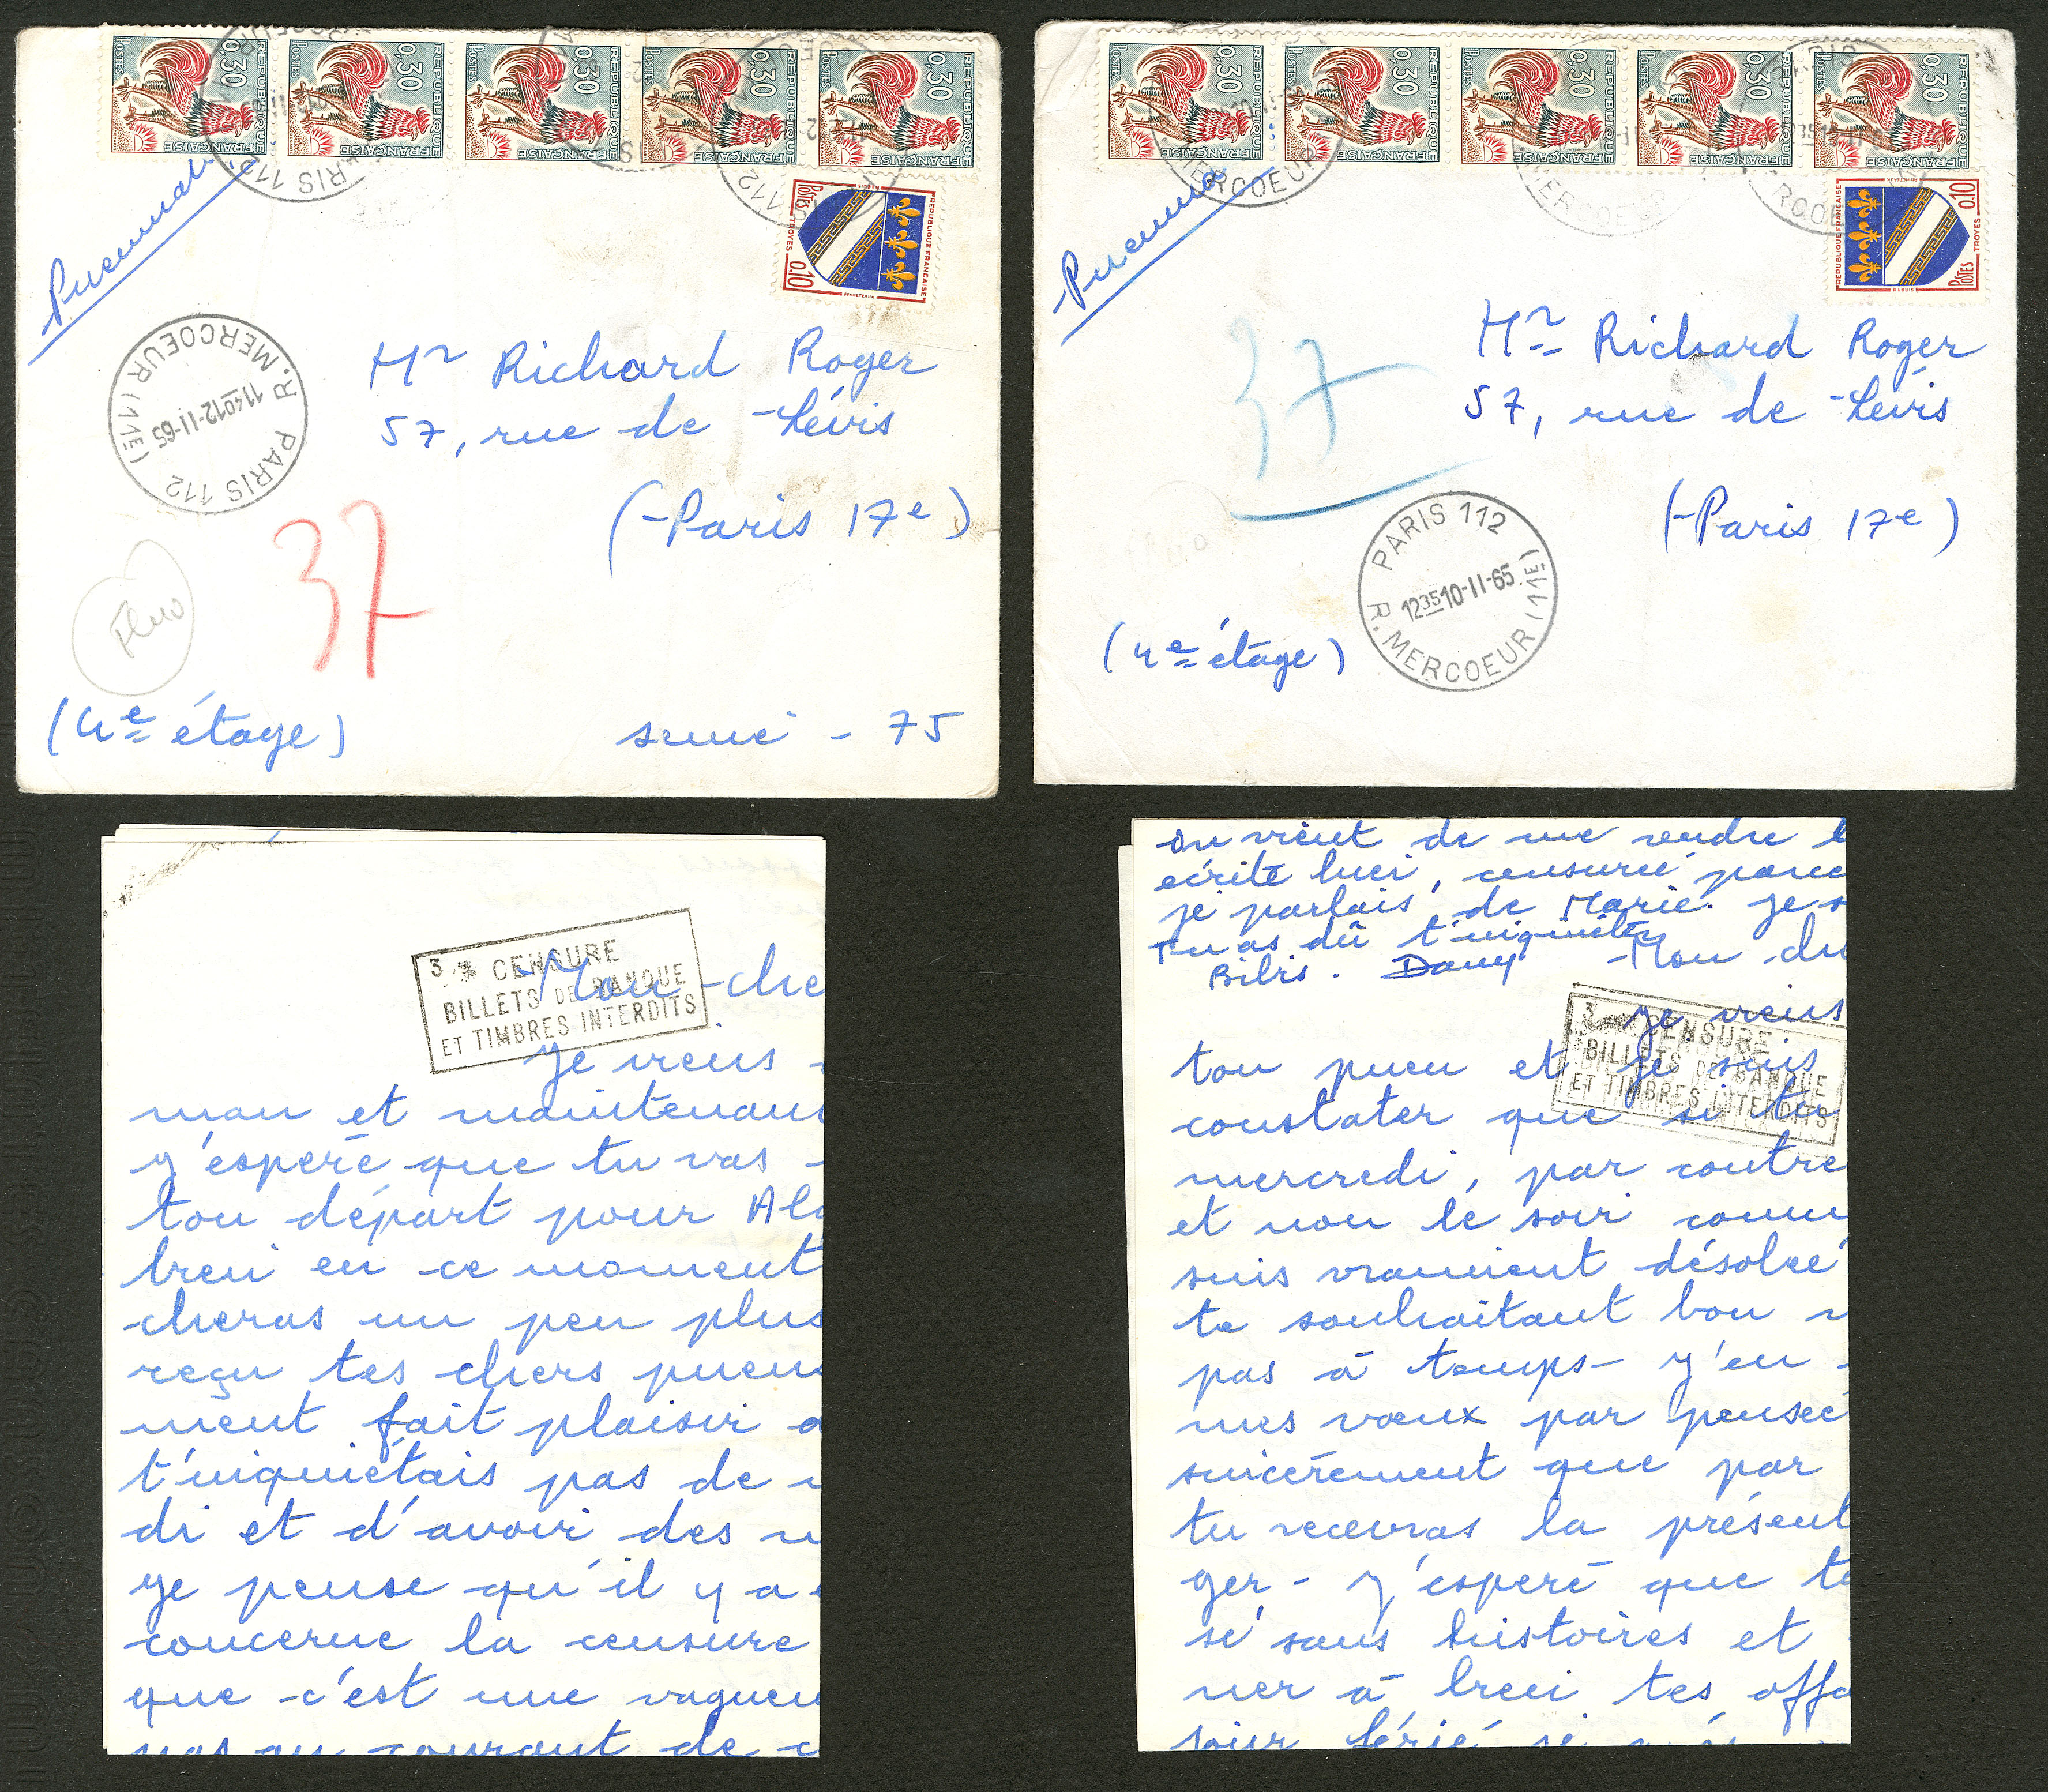 REPUBLIQUE FRANCAISE
0,30
POSTES
REPUBLIQUE FRANCAISE
0,30
POSTES
REPUBLIQUE FRANCAISE
0,30
POSTES
REPUBLIQUE FRANCAISE
0,30
POSTES
REPUBLIQUE FRANCAISE
0,30
POSTES
PARIS 112
REPUBLIQUE FRANCAISE
POSTES
TROYES
0,10
Pneumat.
PARIS 112
1140 12-11-65
R. MERCOEUR (11E)
Mr Richard Roger
57, rue de Lévis
(Paris 17e)
37
(4e étage)
75
REPUBLIQUE FRANCAISE
0,30
POSTES
REPUBLIQUE FRANCAISE
0,30
POSTES
REPUBLIQUE FRANCAISE
0,30
POSTES
REPUBLIQUE FRANCAISE
0,30
POSTES
REPUBLIQUE FRANCAISE
0,30
POSTES
MERCOEUR
MERCOEUR
REPUBLIQUE FRANCAISE
0,10
POSTES
TROYES
Pneuma
Mr Richard Roger
57, rue de Lévis
(Paris 17e)
37
PARIS 112
1235 10-11-65
R. MERCOEUR (11E)
(4e étage)
3 CENSURE
BILLETS DE BANQUE
ET TIMBRES INTERDITS
Mon che
Je viens
man et maintenan
J'espère que tu vas
ton départ pour Al
bien en ce moment
cheras un peu plus
reçu tes chers pneu
ment fait plaisir a
t'inquiétais pas de
di et d'avoir des
Je pense qu'il y a
concerne la censure
que c'est une vague
pas au courant de c
On vient de me rendre l
écrite hier, censurée parce
je parlais de Marie. Je
Tu as dû t'inquiéter
Bibis. Dany
Mon ch
Je viens
3 CENSURE
BILLETS DE BANQUE
ET TIMBRES INTERDITS
ton pneu et je suis
constater que si tu
mercredi, par contre
et non le soir comm
suis vraiment désolée
te souhaitant bon
pas à temps - J'en
mes vœux par pensée
sincèrement que par
tu recevras la présent
ger - J'espère que t
sé sans histoires et
ner à bien tes affa
soir férié si